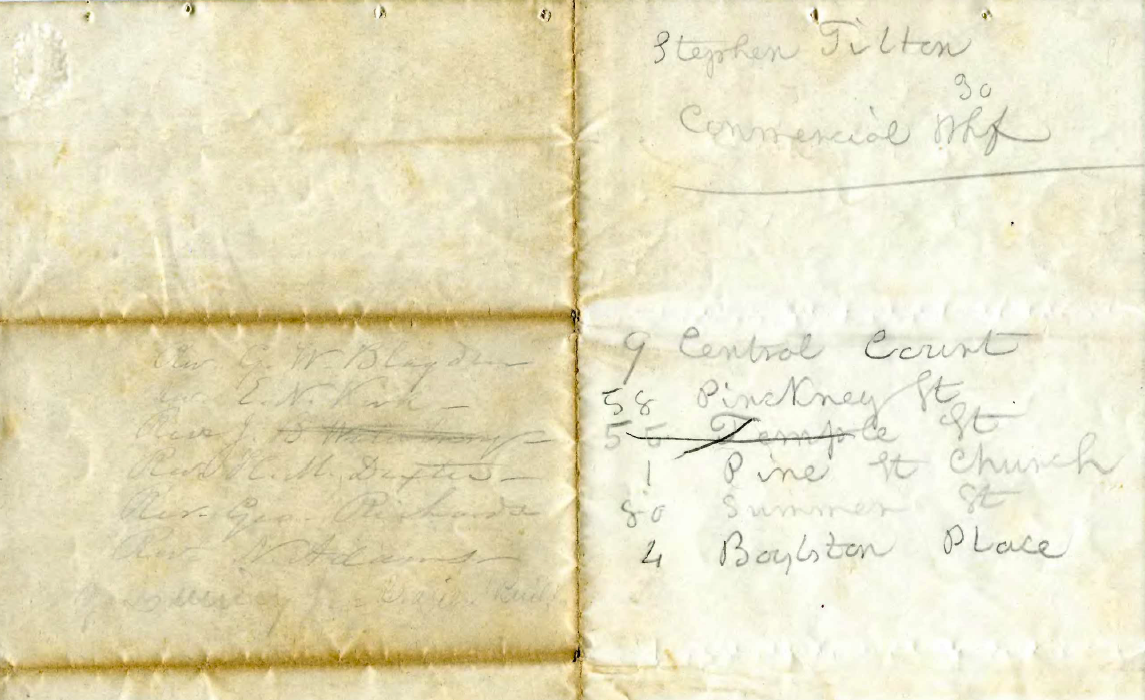 Stephen Tilton
30
Commercial Whf
Rev G. W. Blagden 9 Central Court
E. N. Kirk 58 Pinckney St
Rev J. B. 55 Temple St
Rev H. M. Dexter 1 Pine St Church
Rev. Geo. Richards 80 Summer St
Rev N Adams 4 Boylston Place